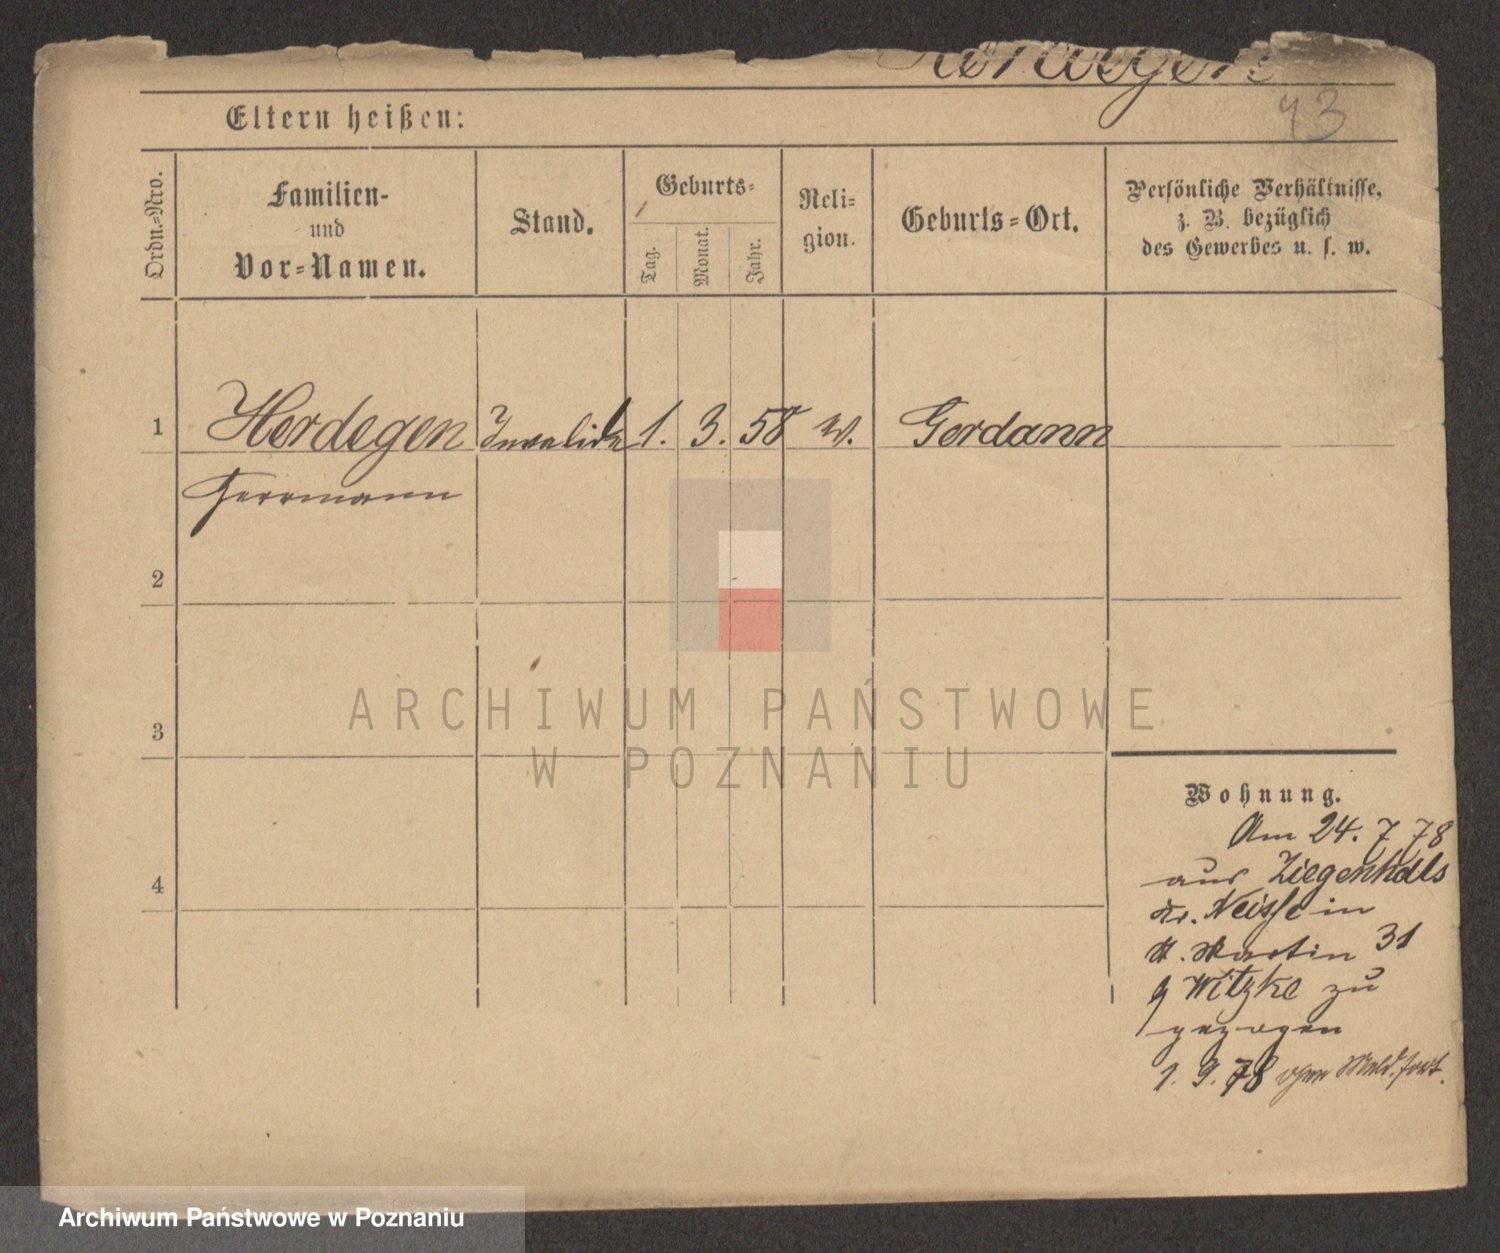 Herdegen
43
Eltern heißen:
Ordn.=Nro.
Familien-
und
Vor=Namen.
Stand.
Geburts=
Tag.
Monat.
Jahr.
Reli=
gion.
Geburts=Ort.
Persönliche Verhältnisse,
z. B. bezüglich
des Gewerbes u. s. w.
1 Herdegen Invalide 1. 3. 58 ev. Gordann
Herrmann
2
3
4
ARCHIWUM PAŃSTWOWE
W POZNANIU
Wohnung.
Am 24. 7 78
aus Ziegenhals
Kr. Neisse in
St. Martin 31
Witzke zu
gezogen
1. 9. 78 ohne Meld. fort.
Archiwum Państwowe w Poznaniu